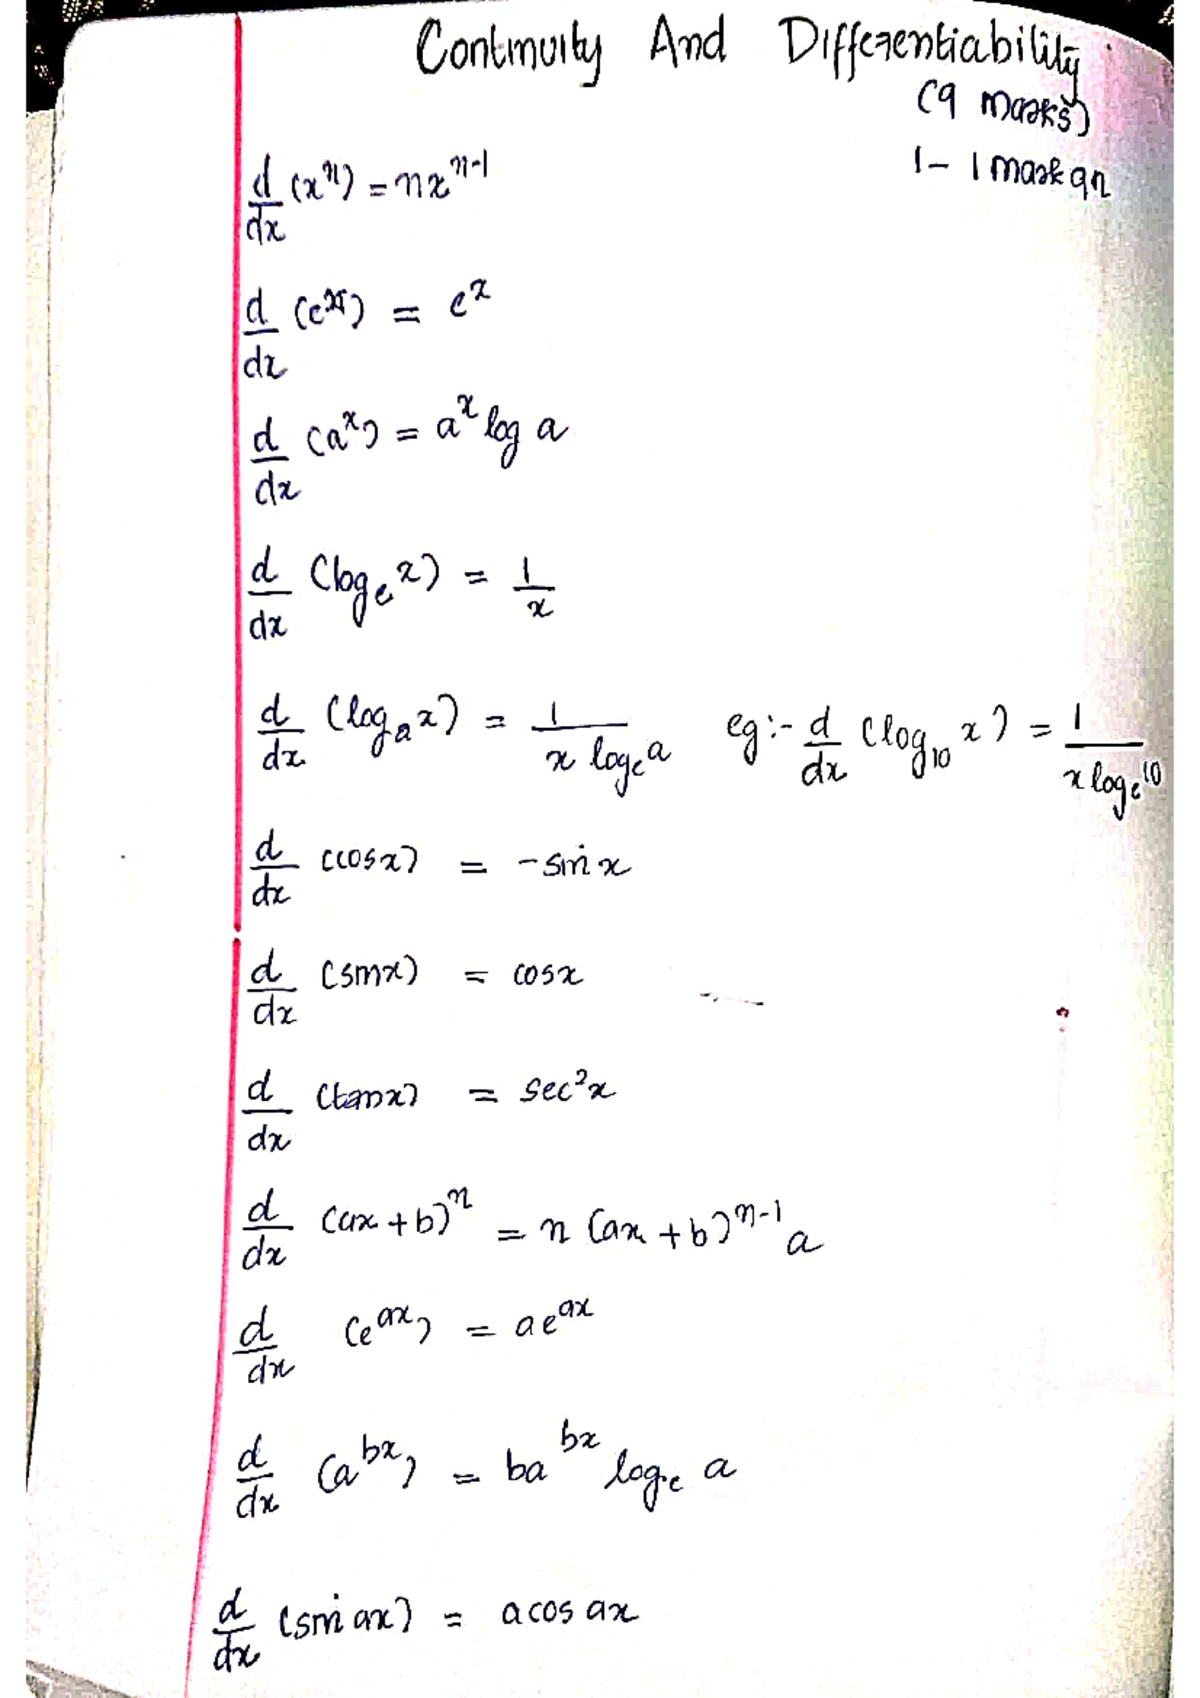 Continuity And Differentiability
(9 marks)
1 - 1 mark qn
d/dx (xⁿ) = nxⁿ⁻¹
d/dx (eˣ) = eˣ
d/dx (aˣ) = aˣ log a
d/dx (logₑ x) = 1/x
d/dx (logₐ x) = 1/(x logₑ a) eg:- d/dx (log₁₀ x) = 1/(x logₑ 10)
d/dx (cosx) = -sin x
d/dx (sinx) = cosx
d/dx (tanx) = sec²x
d/dx (ax + b)ⁿ = n (ax + b)ⁿ⁻¹ a
d/dx (e^ax) = ae^ax
d/dx (a^bx) = ba^bx logₑ a
d/dx (sin ax) = a cos ax